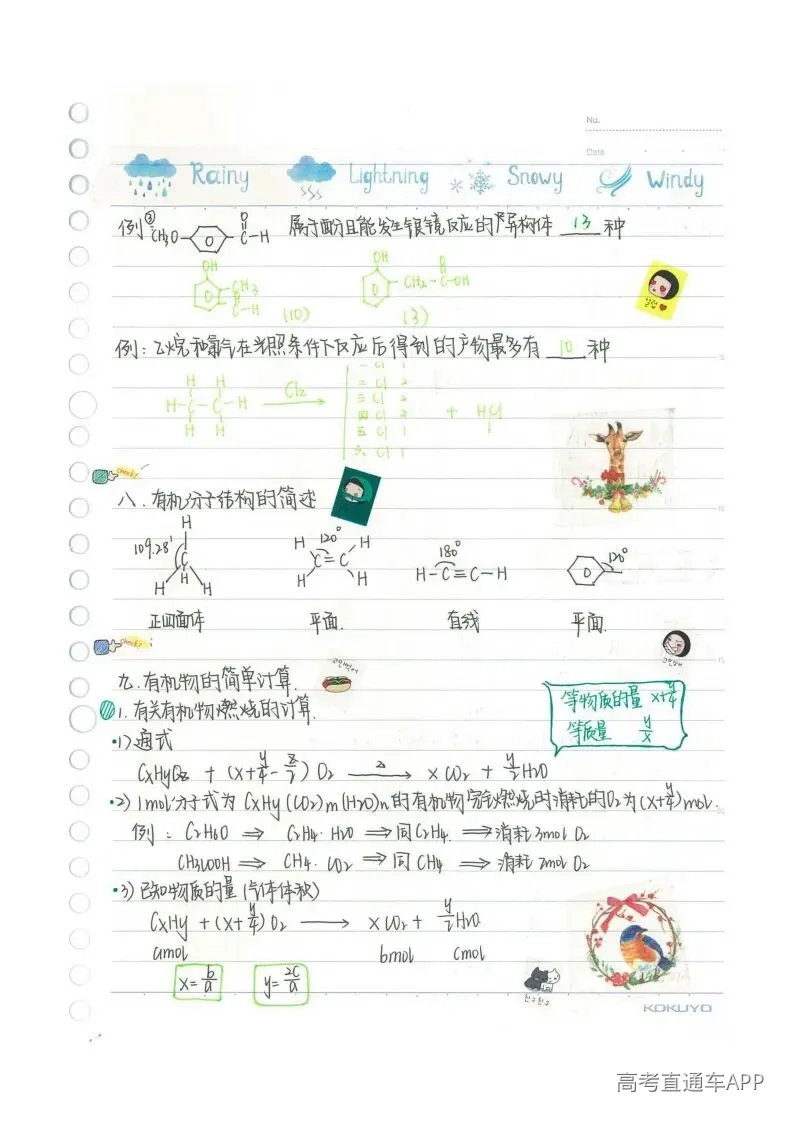 No.
Date
Rainy Lightning Snowy Windy
例② CH₃O- -C-H 属于酚且能发生银镜反应的同分异构体 13 种
O
OH OH
CH₃ CH₂-C-OH
C-H
(10) (3)
例：乙烷和氯气在光照条件下反应后得到的产物最多有 10 种
H H
H-C-C-H Cl₂ + HCl
H H
一 Cl 1
二 Cl 2
三 Cl 2
四 Cl 2
五 Cl 1
六 Cl 1
check!
八．有机分子结构的简述
109.28' 120° 180° 120°
H H H H-C≡C-H
C C=C
H H H H H
正四面体 平面. 直线 平面.
check!
九.有机物的简单计算.
1.有关有机物燃烧的计算.
等物质的量 x+y/4
等质量 y/x
·1)通式
CxHyOz + (x+y/4-z/2)O₂ → xCO₂ + y/2H₂O
·2) 1mol分子式为CxHy(CO₂)m(H₂O)n的有机物完全燃烧时消耗的O₂为(x+y/4)mol.
例：C₂H₆O ⇒ C₂H₄·H₂O ⇒同C₂H₄ ⇒消耗3mol O₂
CH₃COOH ⇒ CH₄·CO₂ ⇒同CH₄ ⇒消耗2mol O₂
·3)已知物质的量(气体体积)
CxHy +(x+y/4)O₂ → xCO₂+ y/2H₂O
amol bmol cmol
x=b/a y=2c/a
친구친구
KOKUYO
高考直通车APP